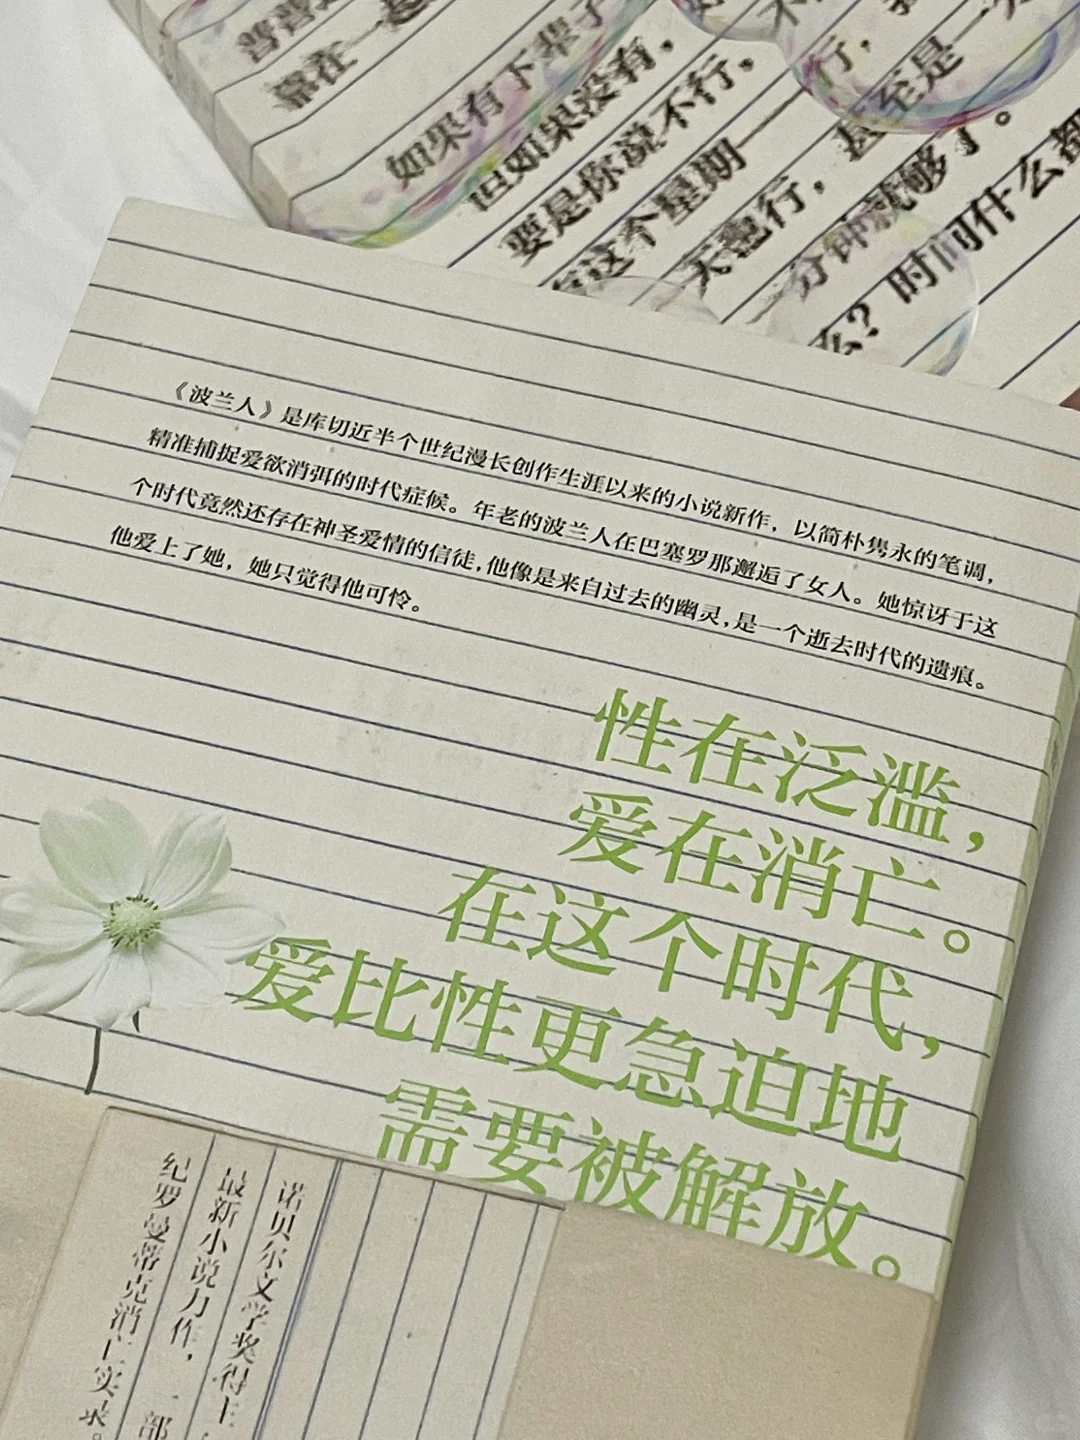 靠在一起
如果有下辈子
但如果没有，
要是你说不行，
这个星期一
行，
天也行，
甚至是一
分钟就够了。
么？时间什么都
《波兰人》是库切近半个世纪漫长创作生涯以来的小说新作，以简朴隽永的笔调，
精准捕捉爱欲消弭的时代症候。年老的波兰人在巴塞罗那邂逅了女人。她惊讶于这
个时代竟然还存在神圣爱情的信徒，他像是来自过去的幽灵，是一个逝去时代的遗痕。
他爱上了她，她只觉得他可怜。
性在泛滥，
爱在消亡。
在这个时代，
爱比性更急迫地
需要被解放。
诺贝尔文学奖得主
最新小说力作，一部
纪罗曼蒂克消亡实录。